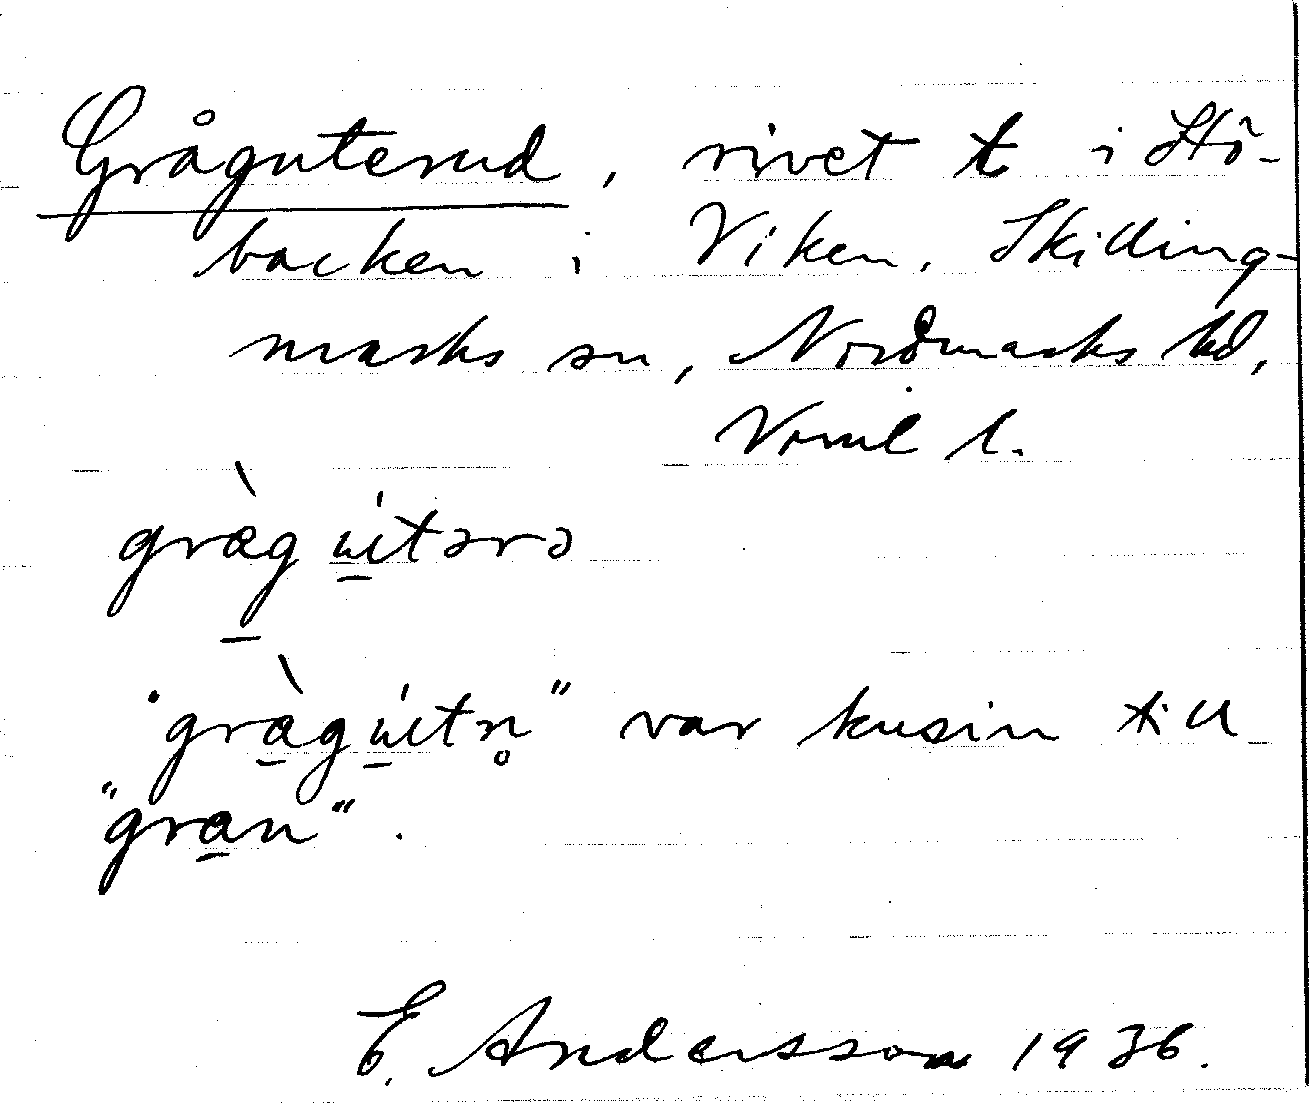 Gråguterud, rivet t i Stö-
backen i Viken, Skilling-
marks sn, Nordmarks hd,
Vrml l.
græ̀gu̲ítərə
"grà̲gu̲ítn̥" var kusin till
"gra̲n".
E. Andersson 1936.